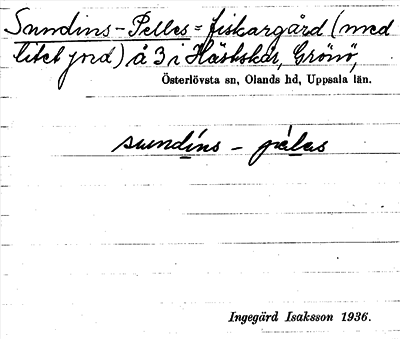 Sundins-Pelles = fiskargård (med
litet jord) å 3 i Hästskär, Grönö,
Österlövsta sn, Olands hd, Uppsala län.
sundíns - pèlas
Ingegärd Isaksson 1936.